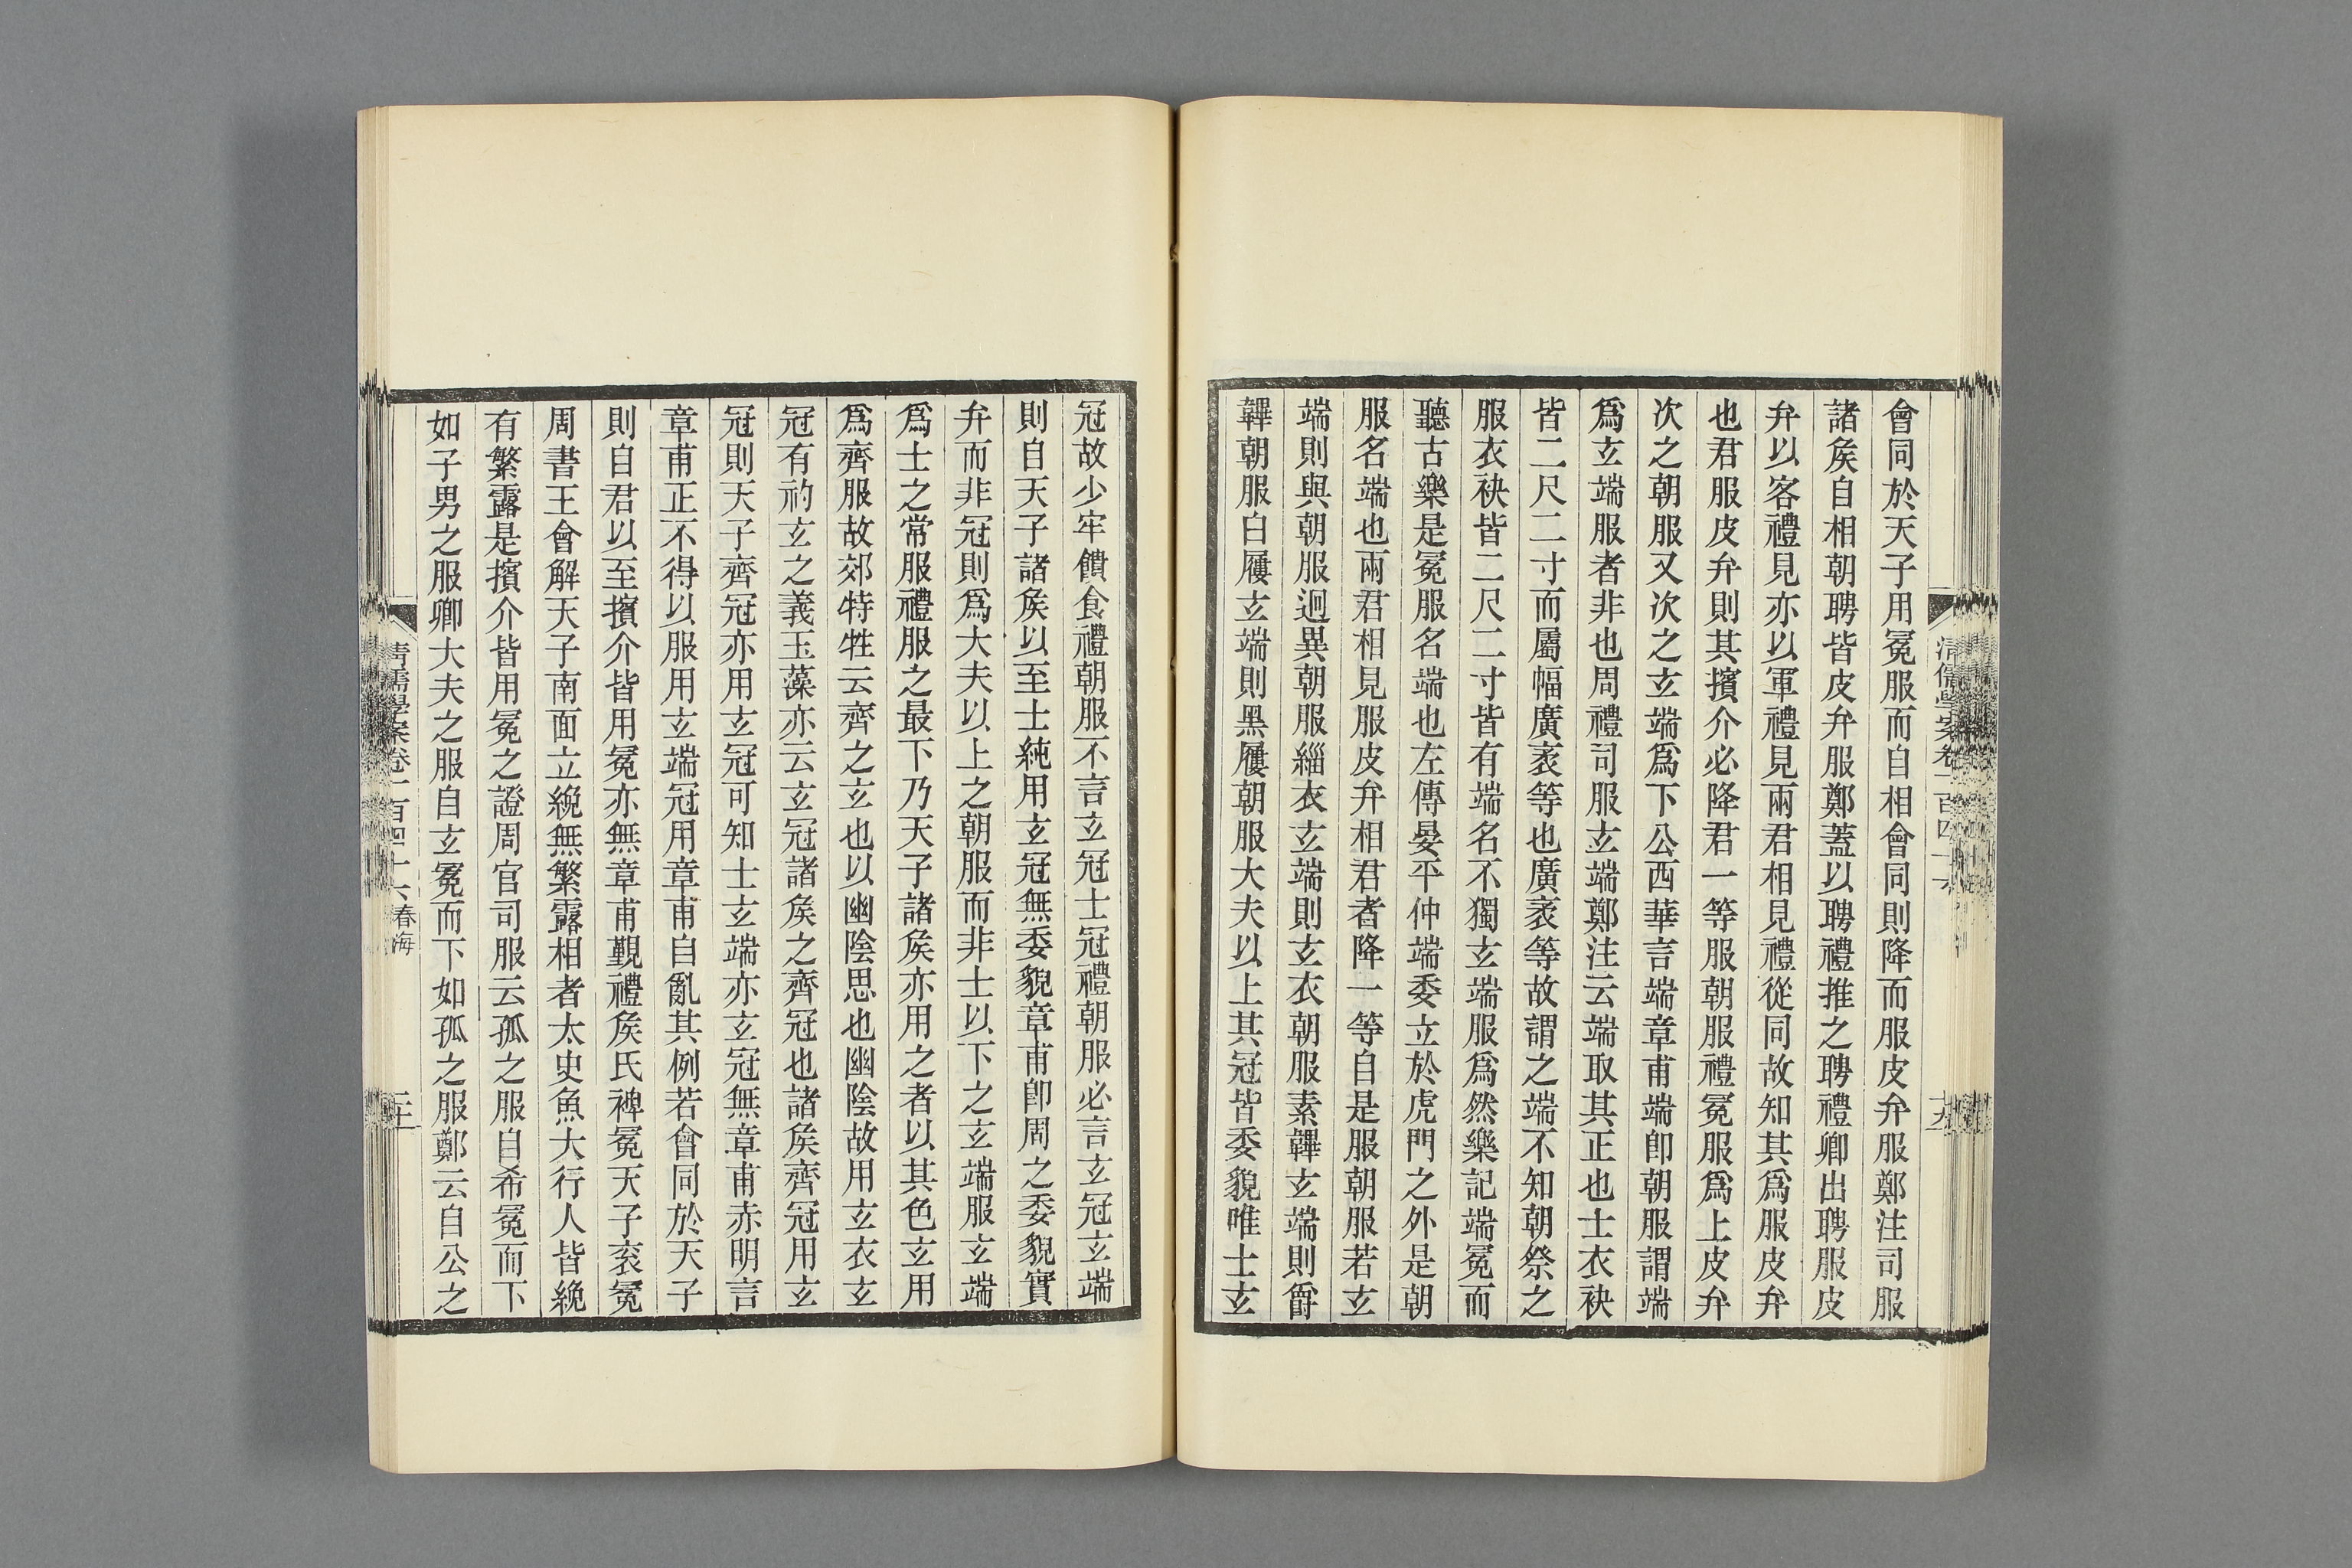 會同於天子用冕服而自相會同則降而服皮弁服鄭注司服
諸矦自相朝聘皆皮弁服鄭蓋以聘禮推之聘禮卿出聘服皮
弁以客禮見亦以軍禮見兩君相見禮從同故知其爲服皮弁
也君服皮弁則其擯介必降君一等服朝服禮冕服爲上皮弁
次之朝服又次之玄端爲下公西華言端章甫端卽朝服謂端
爲玄端服者非也周禮司服玄端鄭注云端取其正也士衣袂
皆二尺二寸而屬幅廣袤等也廣袤等故謂之端不知朝祭之
服衣袂皆二尺二寸皆有端名不獨玄端服爲然樂記端冕而
聽古樂是冕服名端也左傳晏平仲端委立於虎門之外是朝
服名端也兩君相見服皮弁相君者降一等自是服朝服若玄
端則與朝服迥異朝服緇衣玄端則玄衣朝服素韠玄端則爵
韠朝服白屨玄端則黑屨朝服大夫以上其冠皆委貌唯士玄
清儒學案卷一百四十六
十九
冠故少牢饋食禮朝服不言玄冠士冠禮朝服必言玄冠玄端
則自天子諸矦以至士純用玄冠無委貌章甫卽周之委貌實
弁而非冠則爲大夫以上之朝服而非士以下之玄端服玄端
爲士之常服禮服之最下乃天子諸矦亦用之者以其色玄用
爲齊服故郊特牲云齊之玄也以幽陰思也幽陰故用玄衣玄
冠有礿玄之義玉藻亦云玄冠諸矦之齊冠也諸矦齊冠用玄
冠則天子齊冠亦用玄冠可知士玄端亦玄冠無章甫赤明言
章甫正不得以服用玄端冠用章甫自亂其例若會同於天子
則自君以至擯介皆用冕亦無章甫覲禮矦氏裨冕天子衮冕
周書王會解天子南面立絻無繁露相者太史魚大行人皆絻
有繁露是擯介皆用冕之證周官司服云孤之服自希冕而下
如子男之服卿大夫之服自玄冕而下如孤之服鄭云自公之
清儒學案卷一百四十六 春海
二十